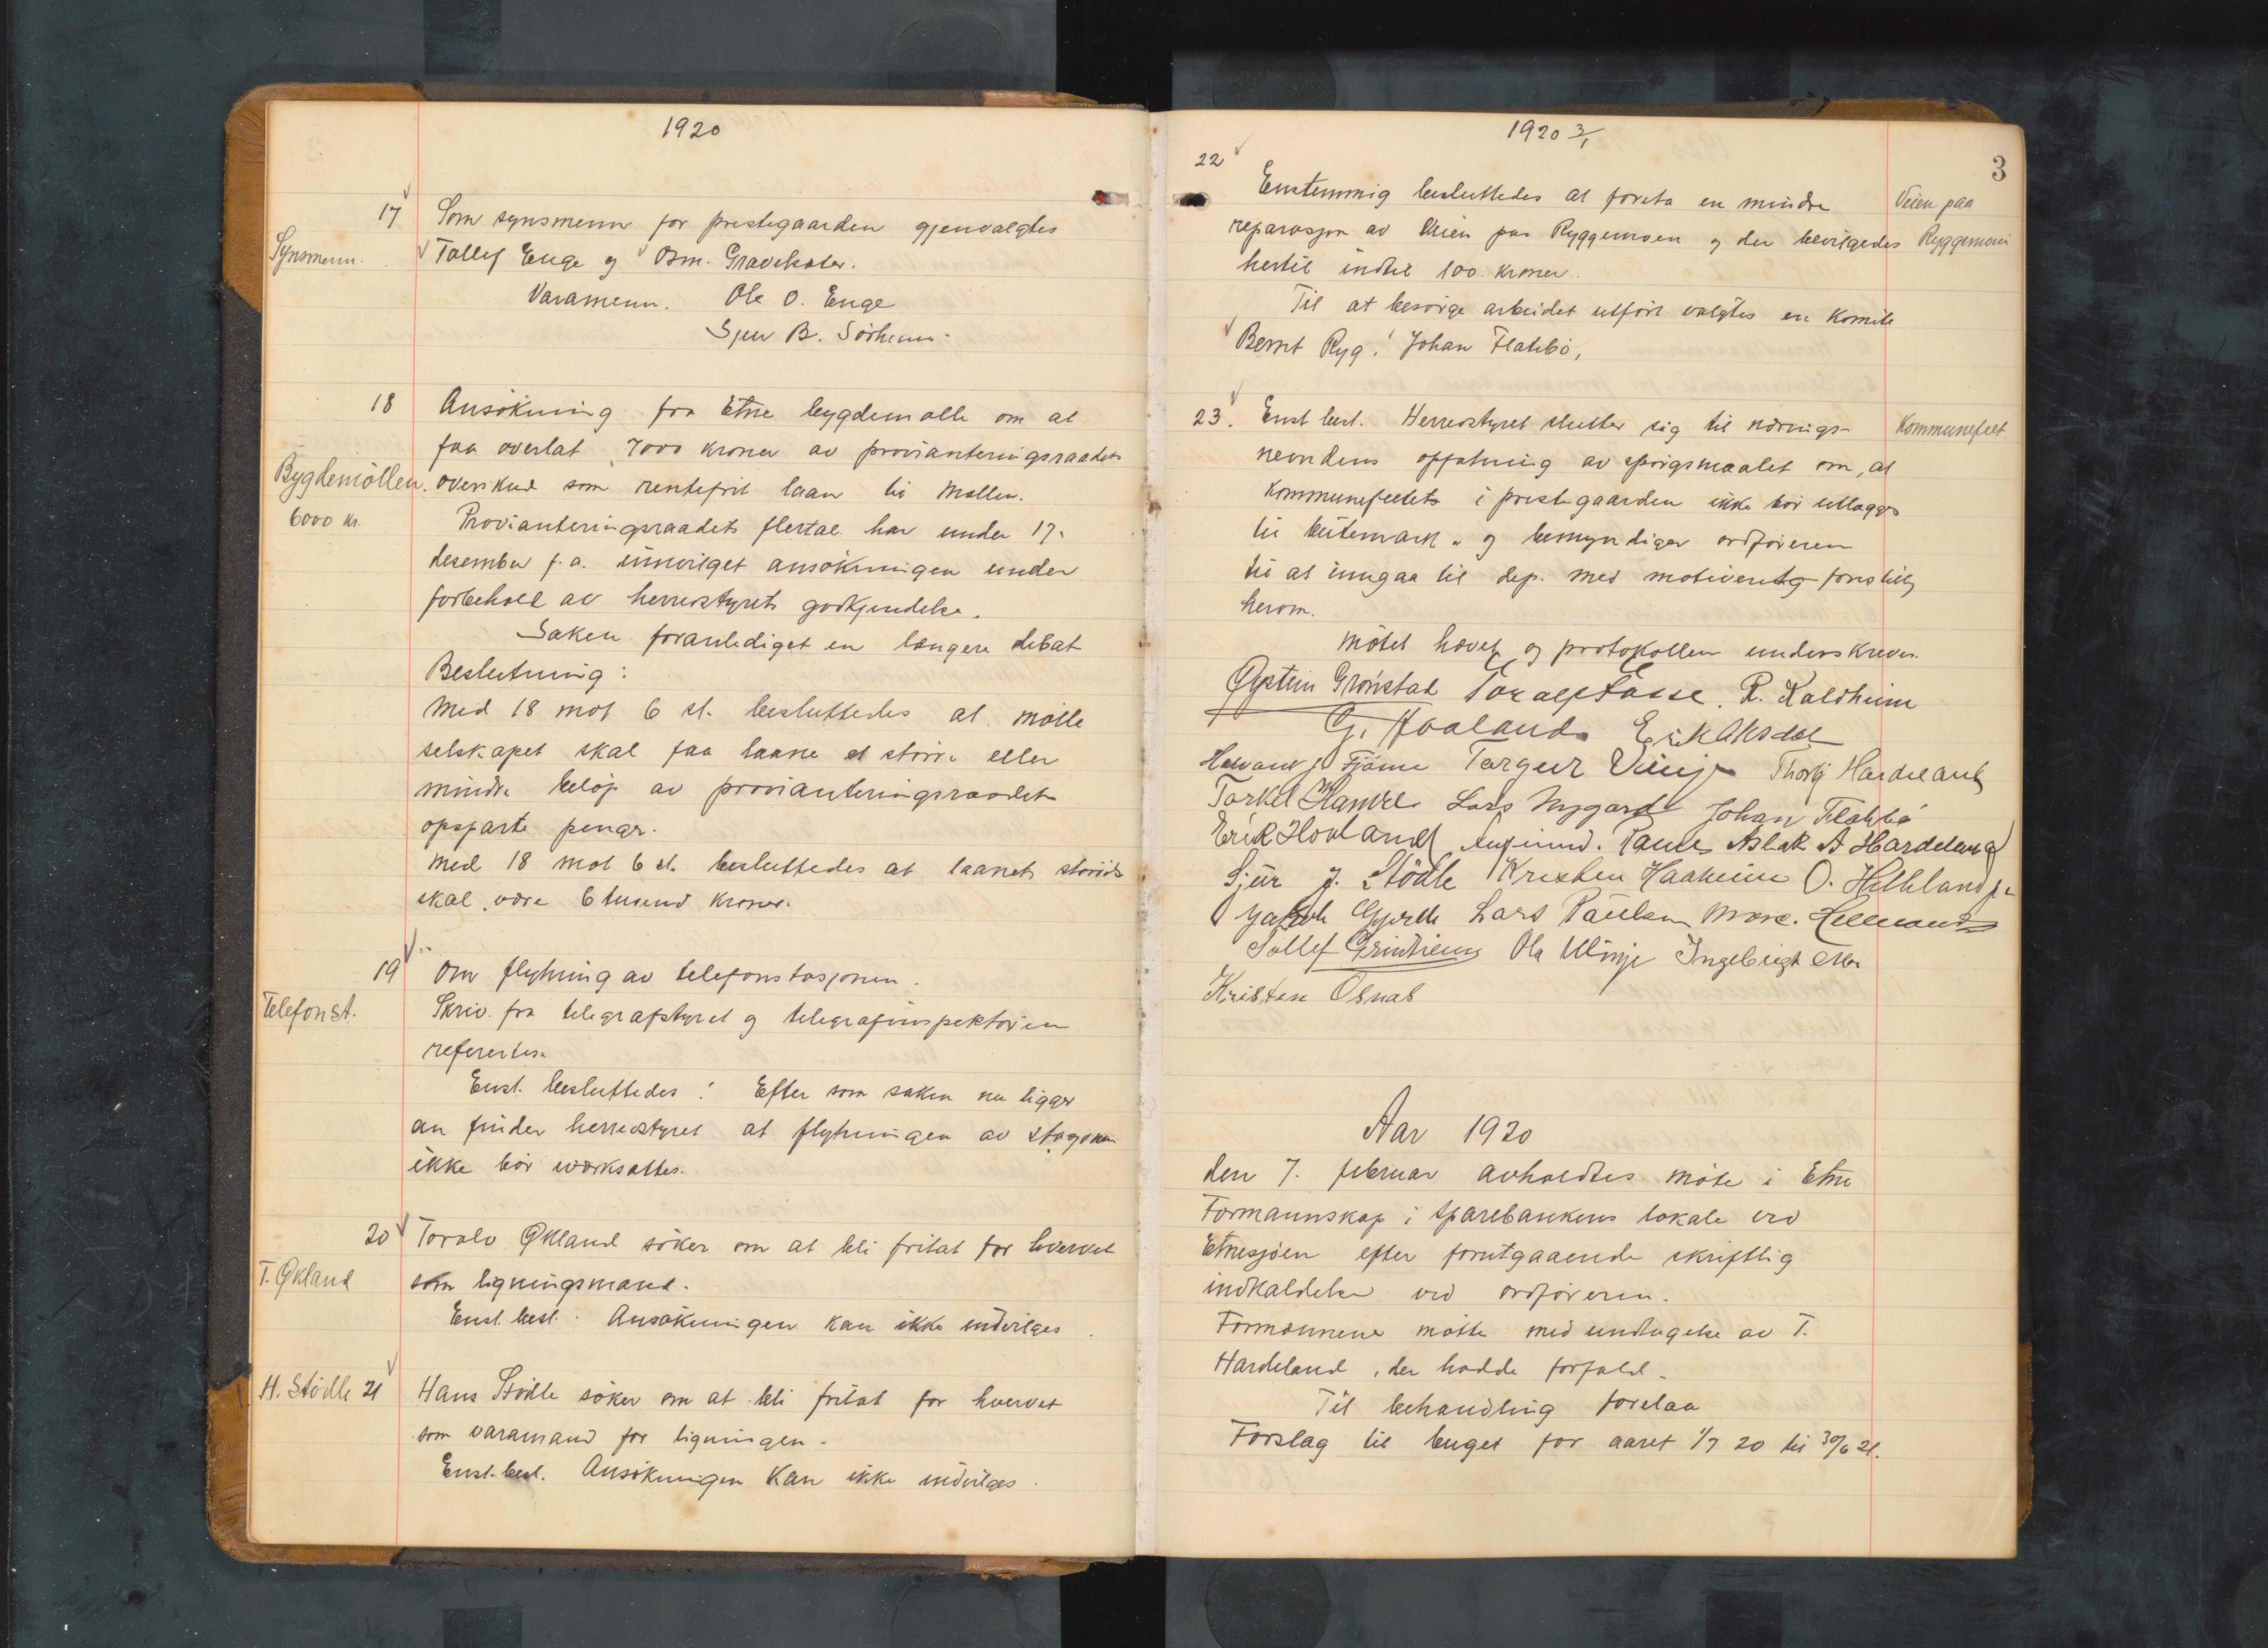 1920
17 Som synsmenn for prestegaarden gjenvalgtes
Synsmenn. Tollef Enge og Osm. Gravelsæter.
Varamenn. Ole O. Enge
Sjur B. Sörheim.
18 Ansökning fra Etne bygdemölle om at
faa overlat 7000 kroner av provianteringsraadets
Bygdemöllen. overskud som rentefrit laan til möllen.
6000 kr. Provianteringsraadets flertal har under 17.
desember f.a. innvilget ansökningen under
forbehold av herredstyrets godkjendelse.
Saken foranlediget en længere debat
Beslutning:
Med 18 mot 6 st. besluttedes at mölle
selskapet skal faa laane et större eller
mindre belöp av provianteringsraadets
opsparte penger.
Med 18 mot 6 st. besluttedes at laanets störrelse
skal være 6 tusend kroner.
19 Om flytning av telefonstasjonen.
Telefonst. Skriv. fra telegrafstyret og telegrafinspektören
refereertes.
Enst. besluttedes: Efter som saken nu ligger
an finder herredstyret at flytningen av stasjonen
ikke bör iverksættes.
20 Toralv Økland söker om at bli fritat for hvervet
T. Økland som ligningsmand.
Enst. besl. Ansökningen kan ikke indvilges.
H. Stödle 21 Hans Stödle söker om at bli fritat for hvervet
som varamand for ligningen.
Enst. besl. Ansökningen kan ikke indvilges.
1920 3/1
3
22
Enstemmig besluttedes at foreta en mindre Veien paa
reparasjon av veien paa Ryggemoen og der bevilgedes Ryggemoen
hertil indtil 100 kroner.
Til at besörge arbeidet utfört valgtes en komite
Bernt Ryg, Johan Flatebö,
23. Enst besl. Herredstyret slutter sig til nærings- Kommunefeet
nevndens opfatning av spörgsmaalet om, at
Kommunefeetets i prestegaarden ikke bör utlægges
til beitemark og bemyndiger ordföreren
til at inngaa til dep. med motivert forestilling
herom.
Mötet hævet og protokollen underskreven.
Øystein Grönstad Toralf Fosse. R. Kaldheim
G. Haaland. Erik Aksdal
Halvard J Fjöme Torgeir Vinje Thorbj Hardeland
Torkel Hamre Lars Nygard Johan Flatebö
Erik Hovland Aslak A Hardeland
Sjur J. Stödle Kristen Haaheim O. Helleland
Jakob Gjerde Lars Paulsen
Tollef Grindheim Ola Vinje Ingebrigt
Kristen Øsnes
Aar 1920
den 7. februar avholdtes möte i Etne
Formannskap i Sparebankens lokale ved
Etnesjöen efter forutgaaende skriftlig
indkaldelse ved ordföreren.
Formennene mötte med undtagelse av T.
Hardeland, der hadde forfald.
Til behandling forelaa
Forslag til buget for aaret 1/7 20 til 30/6 21.